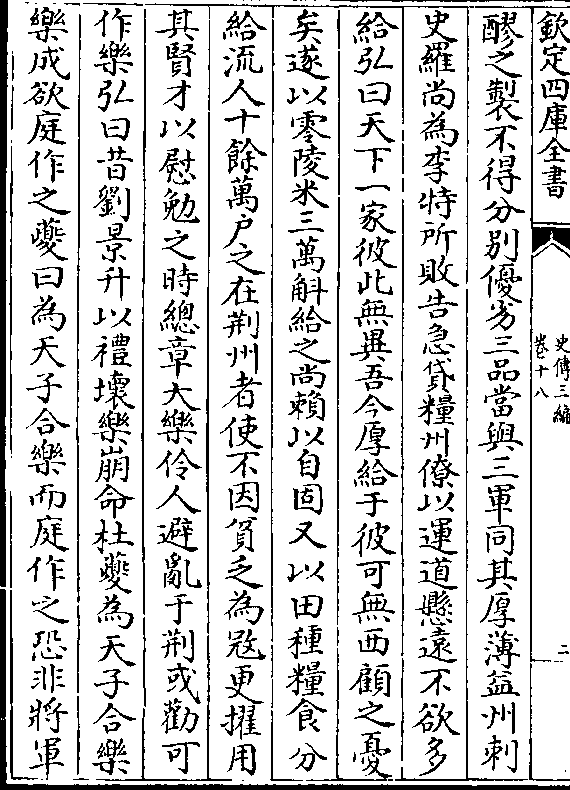 欽定四庫全書
史傳三編
卷十八
二
醪之製不得分別優劣三品當與三軍同其厚薄益州刺
史羅尚為李特所敗告急貸糧州僚以運道懸遠不欲多
給弘曰天下一家彼此無異吾今厚給于彼可無西顧之憂
矣遂以零陵米三萬斛給之尚賴以自固又以田種糧食分
給流人十餘萬户之在荆州者使不因貧乏為宼更擢用
其賢才以慰勉之時總章大樂伶人避亂于荆或勸可
作樂弘曰昔劉景升以禮壞樂崩命杜夔為天子合樂
樂成欲庭作之夔曰為天子合樂而庭作之恐非將軍